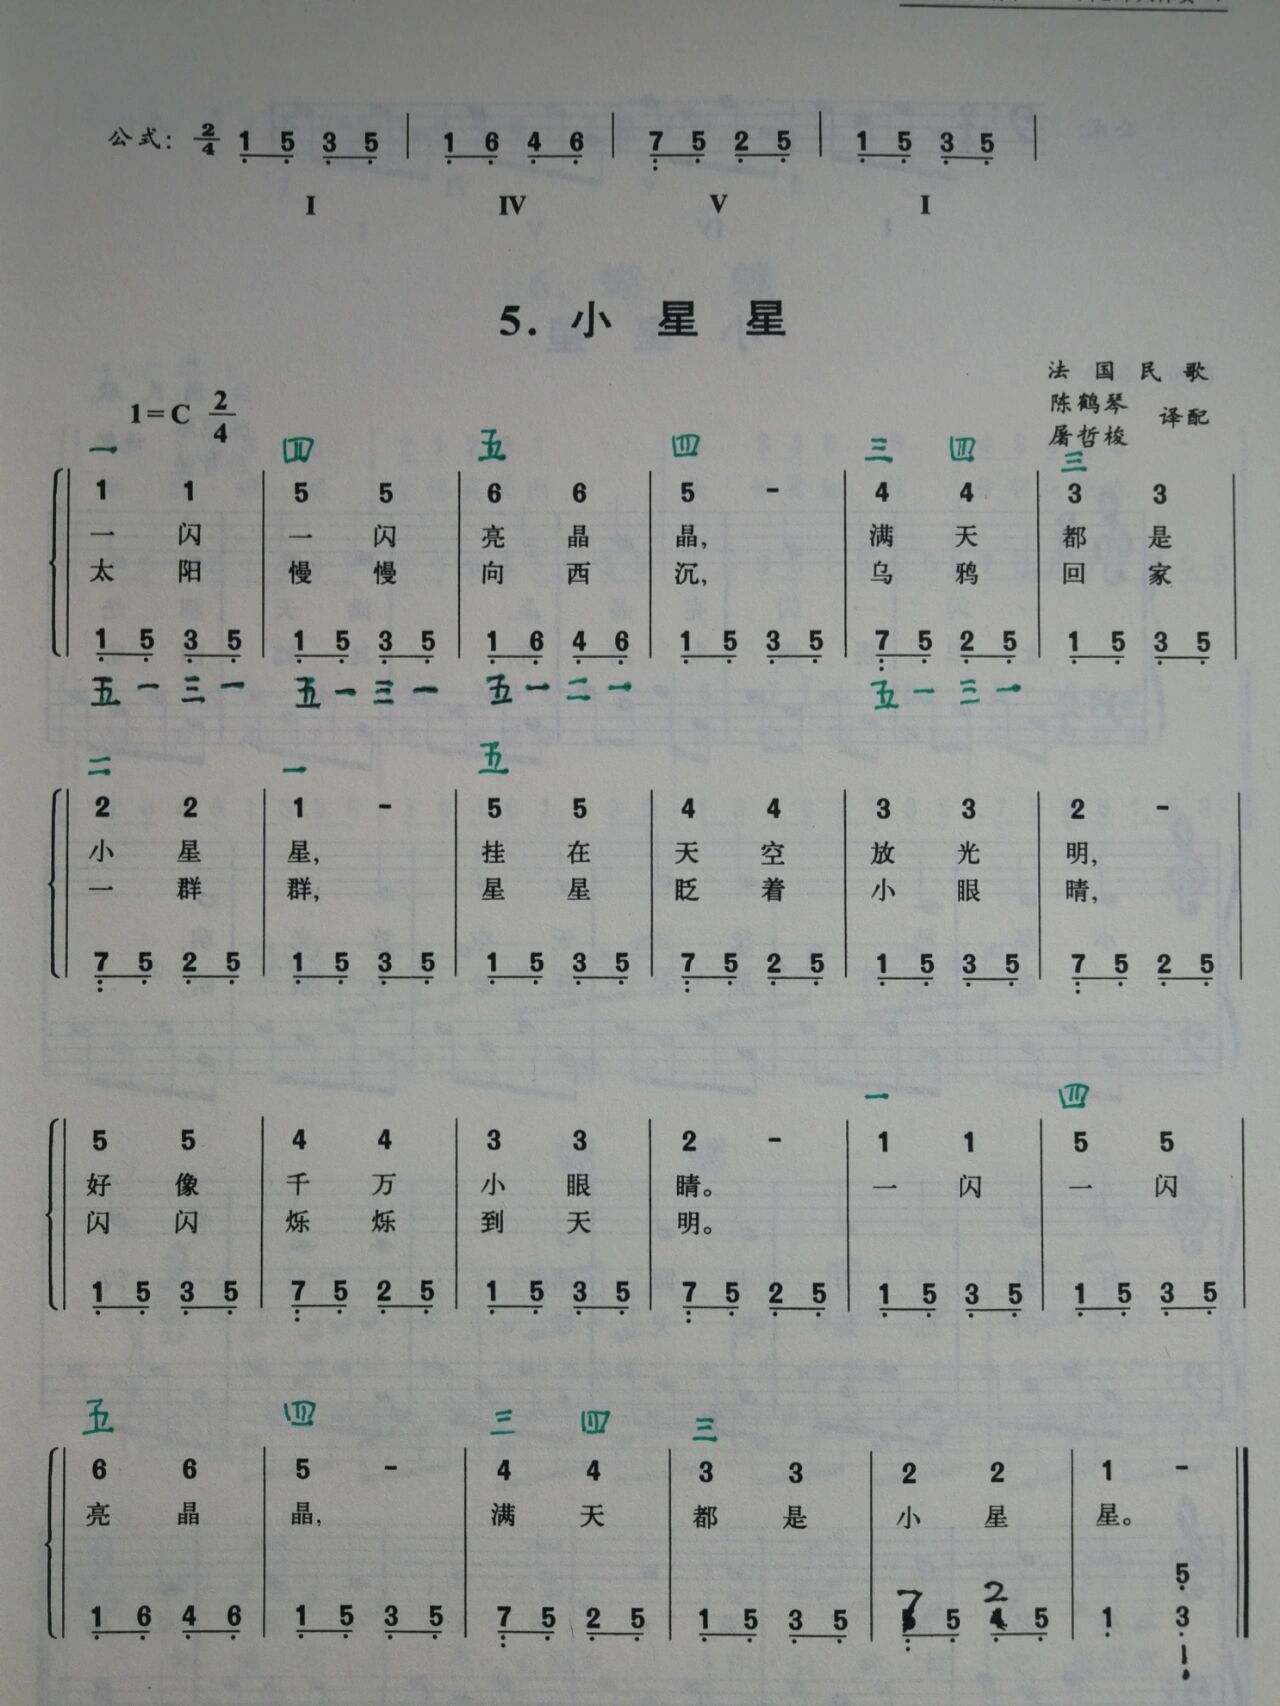 公式: 2/4 1 5 3 5 | 1 6 4 6 | 7 5 2 5 | 1 5 3 5 |
I IV V I
5. 小 星 星
法 国 民 歌
1=C 2/4
陈鹤琴
屠哲梭
译配
一 四 五 四 三 四 三
1 1 | 5 5 | 6 6 | 5 - | 4 4 | 3 3 |
一 闪 一 闪 亮 晶 晶, 满 天 都 是
太 阳 慢 慢 向 西 沉, 乌 鸦 回 家
1 5 3 5 | 1 5 3 5 | 1 6 4 6 | 1 5 3 5 | 7 5 2 5 | 1 5 3 5 |
五 一 三 一 五 一 三 一 五 一 二 一 五 一 三 一
二 一 五
2 2 | 1 - | 5 5 | 4 4 | 3 3 | 2 - |
小 星 星, 挂 在 天 空 放 光 明,
一 群 群, 星 星 眨 着 小 眼 睛,
7 5 2 5 | 1 5 3 5 | 1 5 3 5 | 7 5 2 5 | 1 5 3 5 | 7 5 2 5 |
一 四
5 5 | 4 4 | 3 3 | 2 - | 1 1 | 5 5 |
好 像 千 万 小 眼 睛。 一 闪 一 闪
闪 闪 烁 烁 到 天 明。
1 5 3 5 | 7 5 2 5 | 1 5 3 5 | 7 5 2 5 | 1 5 3 5 | 1 5 3 5 |
五 四 三 四 三
6 6 | 5 - | 4 4 | 3 3 | 2 2 | 1 - ‖
亮 晶 晶, 满 天 都 是 小 星 星。
7 2 5
1 6 4 6 | 1 5 3 5 | 7 5 2 5 | 1 5 3 5 | 5 5 | 1 3 ‖
1